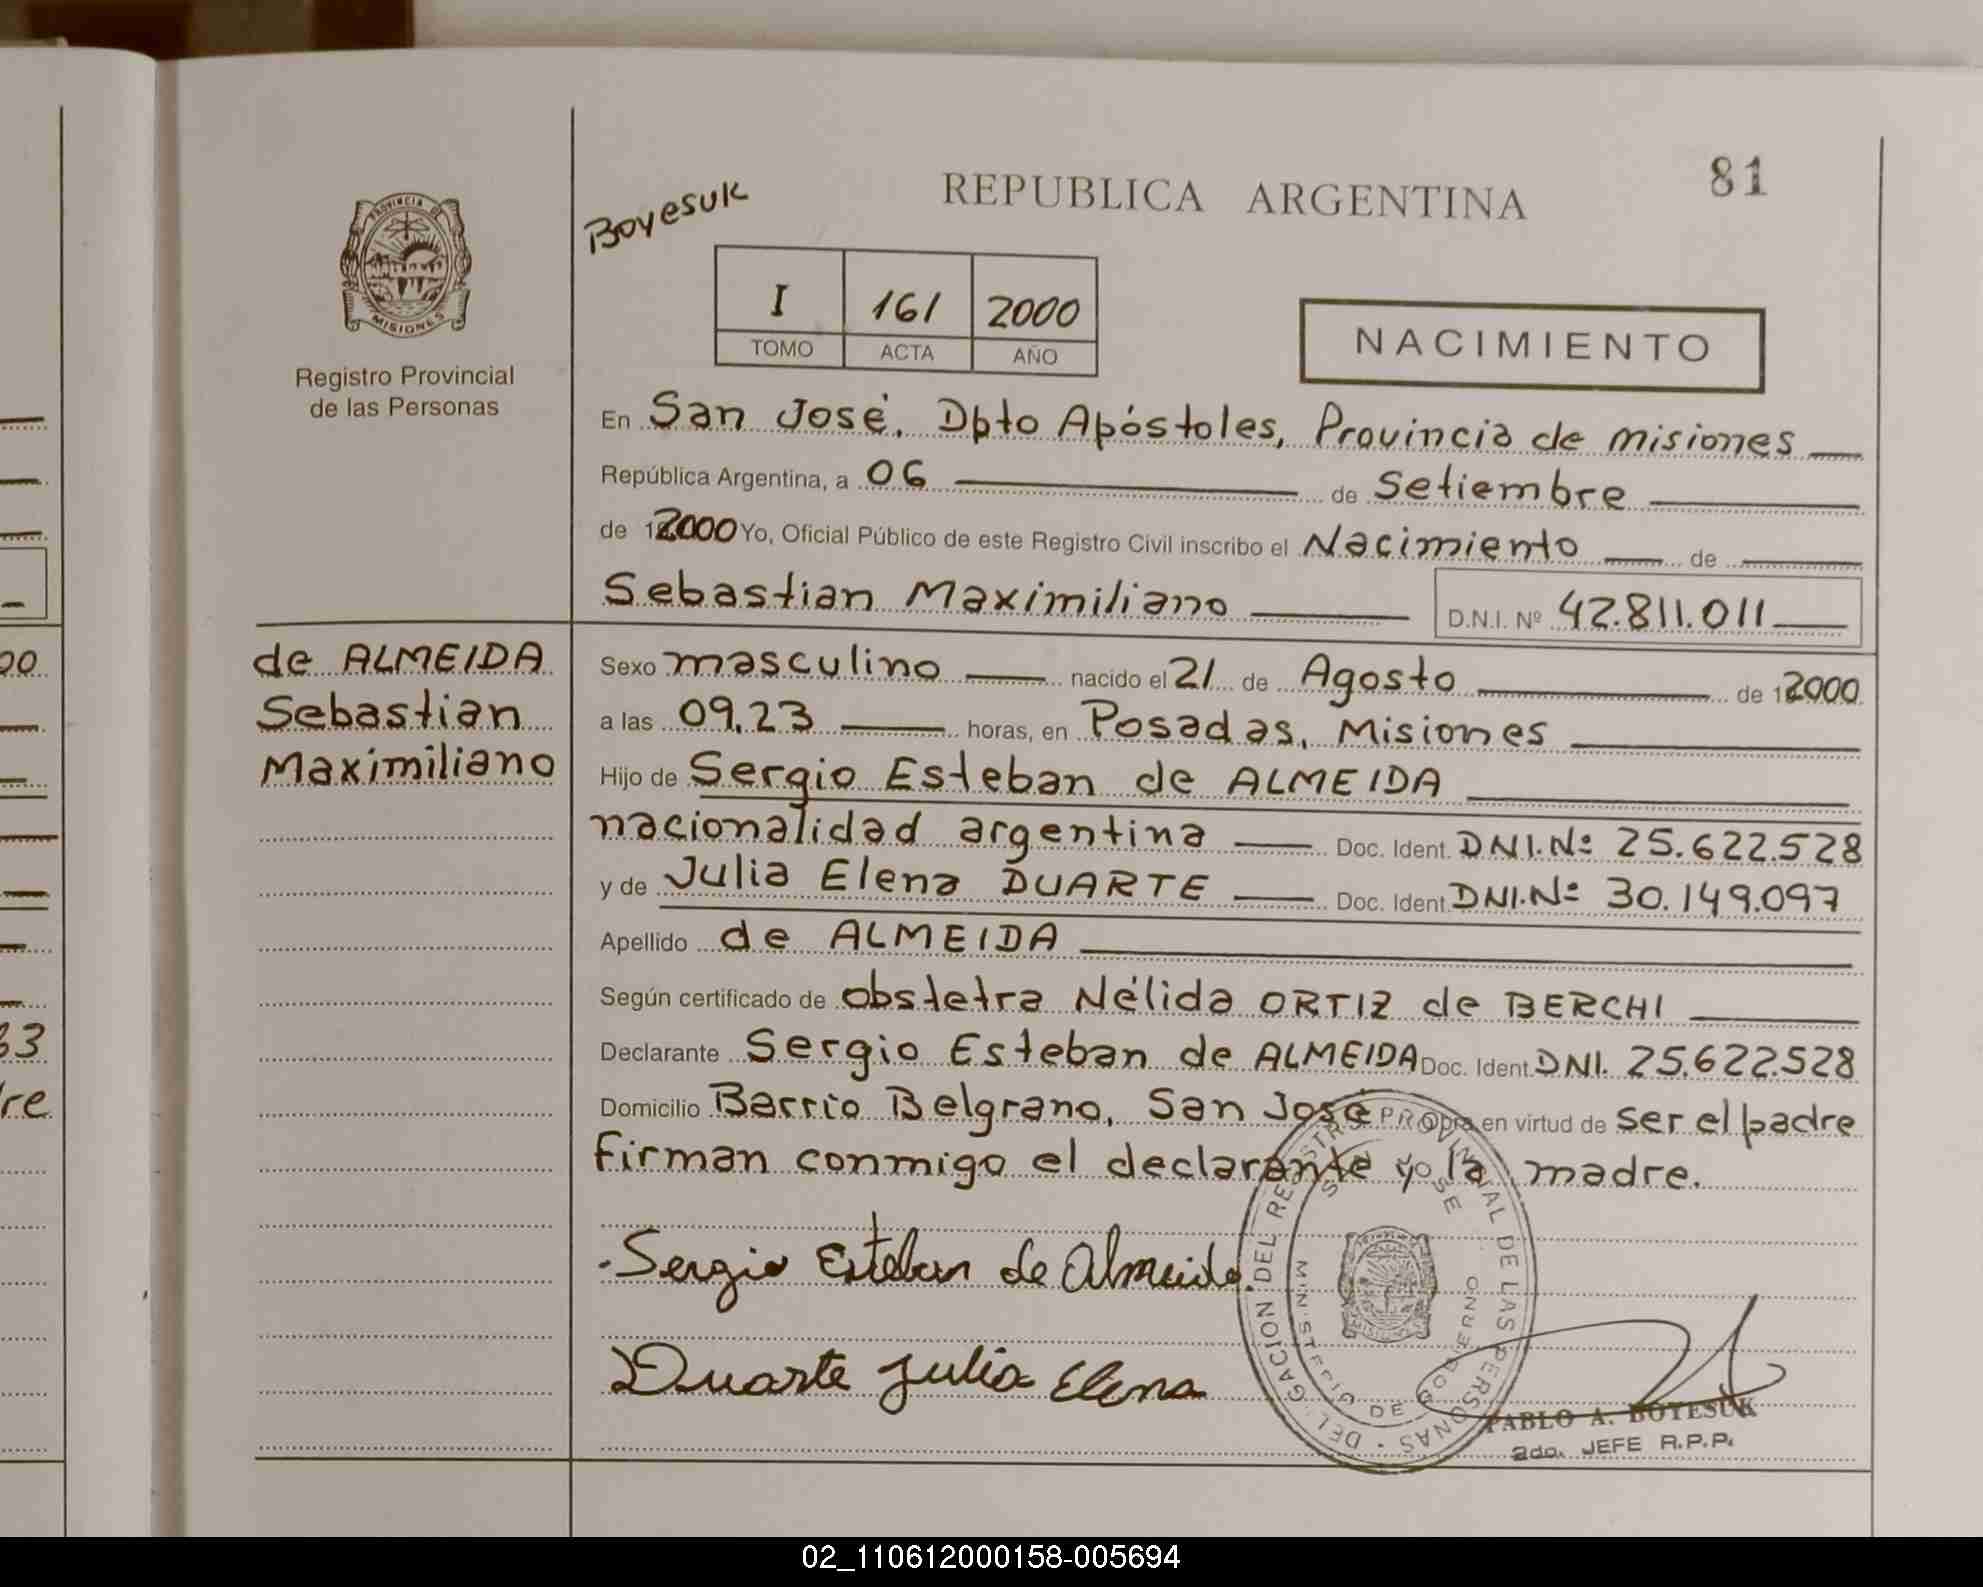 81
REPUBLICA ARGENTINA
Boyesuk
PROVINCIA DE
MISIONES
Registro Provincial
de las Personas
I 161 2000
TOMO ACTA AÑO
NACIMIENTO
En San José, Dpto Apóstoles, Provincia de misiones
República Argentina, a 06 de Setiembre
de 12000 Yo, Oficial Público de este Registro Civil inscribo el Nacimiento de
Sebastian Maximiliano D.N.I. Nº 42.811.011
de ALMEIDA
Sebastian
Maximiliano
Sexo masculino nacido el 21 de Agosto de 12000
a las 09,23 horas, en Posadas, Misiones
Hijo de Sergio Esteban de ALMEIDA
nacionalidad argentina Doc. Ident. DNI.Nº 25.622.528
y de Julia Elena DUARTE Doc. Ident. DNI.Nº 30.149.097
Apellido de ALMEIDA
Según certificado de obstetra Nélida ORTIZ de BERCHI
Declarante Sergio Esteban de ALMEIDA Doc. Ident. DNI. 25.622.528
Domicilio Barrio Belgrano, San José en virtud de ser el padre
firman conmigo el declarante y la madre.
Sergio Esteban de Almeida.
Duarte Julia Elena
DELEGACION DEL REGISTRO PROVINCIAL DE LAS PERSONAS
SAN JOSE
MINISTERIO DE GOBIERNO
PABLO A. BOYESUK
2do. JEFE R.P.P.
00
33
re
02_110612000158-005694